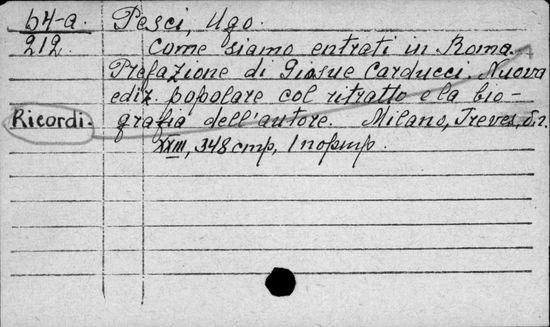 64-a. Pesci, Ugo.
212. Come siamo entrati in Roma.
Prefazione di Giosue Carducci. Nuova
ediz. popolare col ritratto e la bio-
Ricordi. grafia dell'autore. Milano, Treves, s.a.
XXIII, 348 cmp, 1 nopmp.